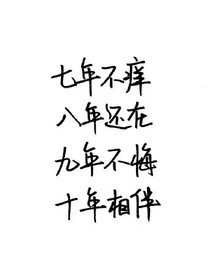 七年不痒
八年还在
九年不悔
十年相伴